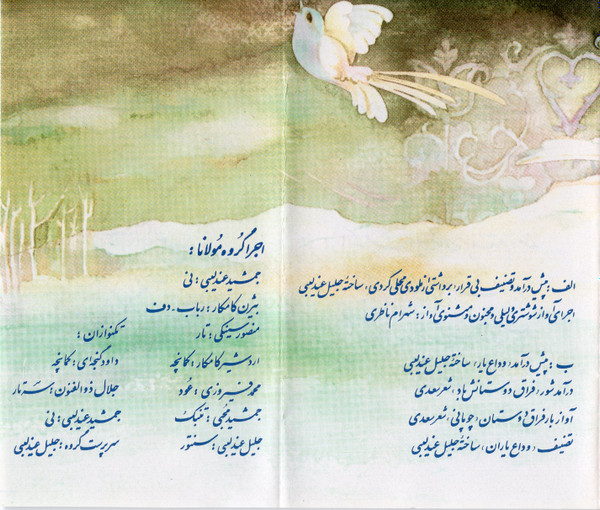 الف : پیش درآمد و تصنیف بی قرار، برداشتی از ملودی محلی کردی، ساختهٔ جلیل عندلیبی
اجرای آواز شوشتری لیلی و مجنون و مثنوی آواز : شهرام ناظری
ب : پیش درآمد، وداع یار، ساختهٔ جلیل عندلیبی
درآمد شور، فراق دوستانش باد، شعر سعدی
آواز بار فراق دوستان، چوپانی، شعر سعدی
تصنیف، وداع یاران، ساختهٔ جلیل عندلیبی
اجرا گروه مولانا :
جمشید عندلیبی : نی
بیژن کامکار : رباب - دف
منصور سینکی : تار
اردشیر کامکار : کمانچه
محمد فیروزی : عود
جمشید محبی : تنبک
جلیل عندلیبی : سنتور
تکنوازان :
داود گنجه‌ای : کمانچه
جلال ذوالفنون : سه‌تار
جمشید عندلیبی : نی
سرپرست گروه : جلیل عندلیبی